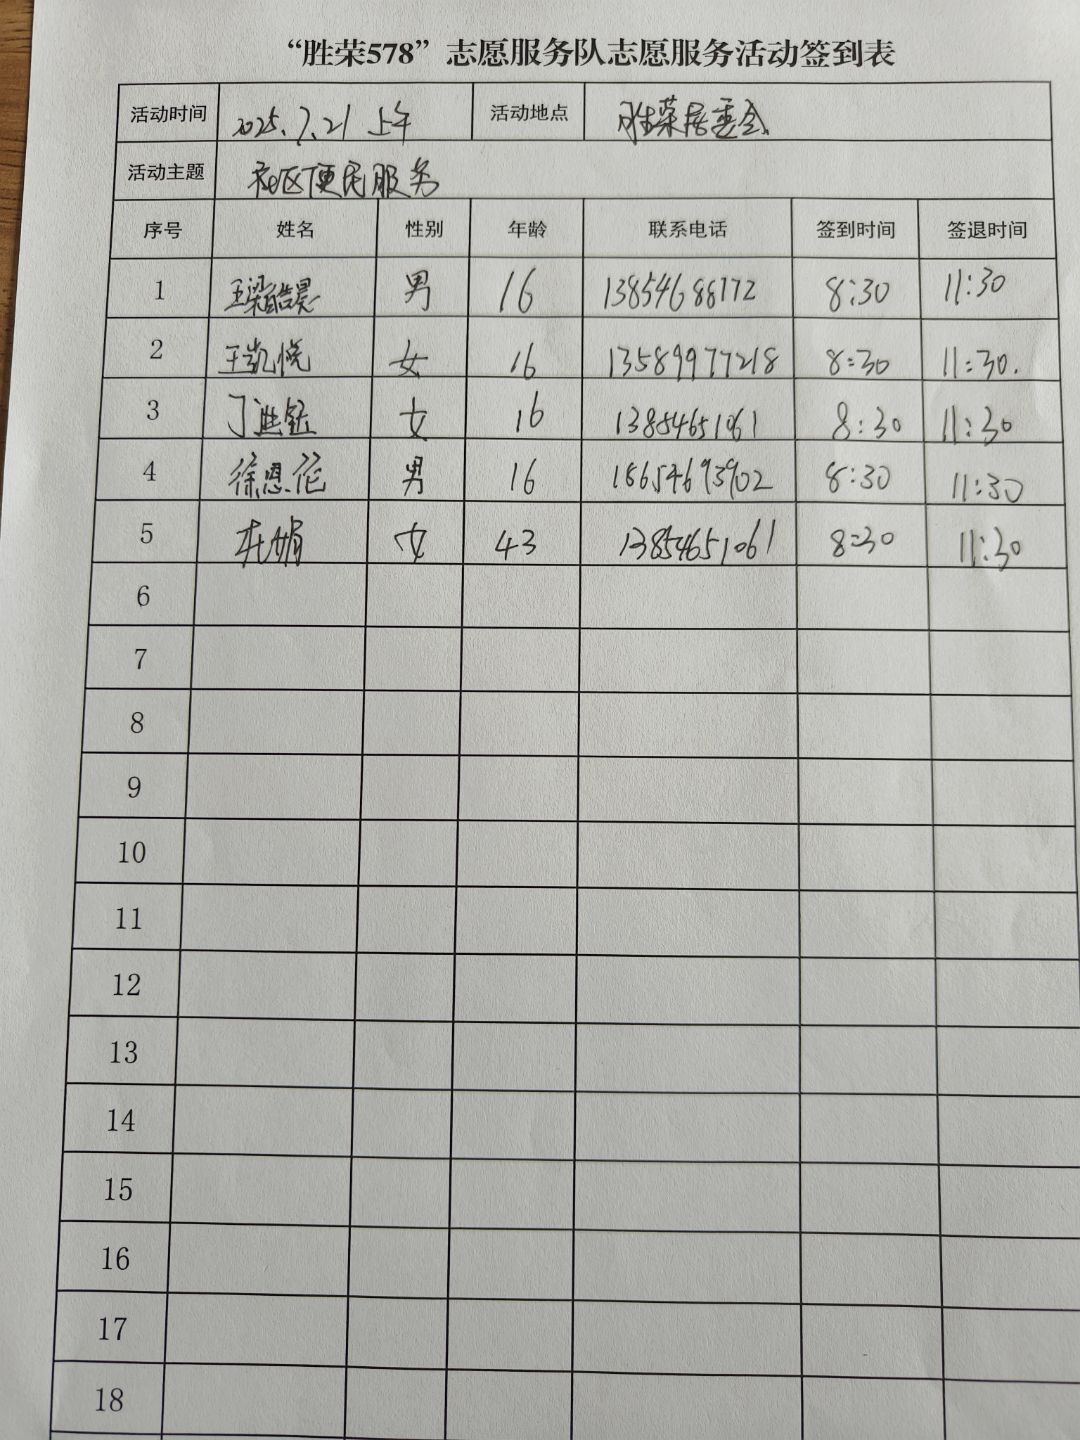 “胜荣578”志愿服务队志愿服务活动签到表
活动时间 2025.7.21 上午 活动地点 胜荣居委会
活动主题 社区便民服务
序号 姓名 性别 年龄 联系电话 签到时间 签退时间
1 王梁皓昊 男 16 13854688172 8:30 11:30
2 王凯悦 女 16 13589977218 8:30 11:30.
3 丁 女 16 13854651061 8:30 11:30
4 徐恩佗 男 16 18654693902 8:30 11:30
5 杜娟 女 43 13854651061 8:30 11:30
6
7
8
9
10
11
12
13
14
15
16
17
18